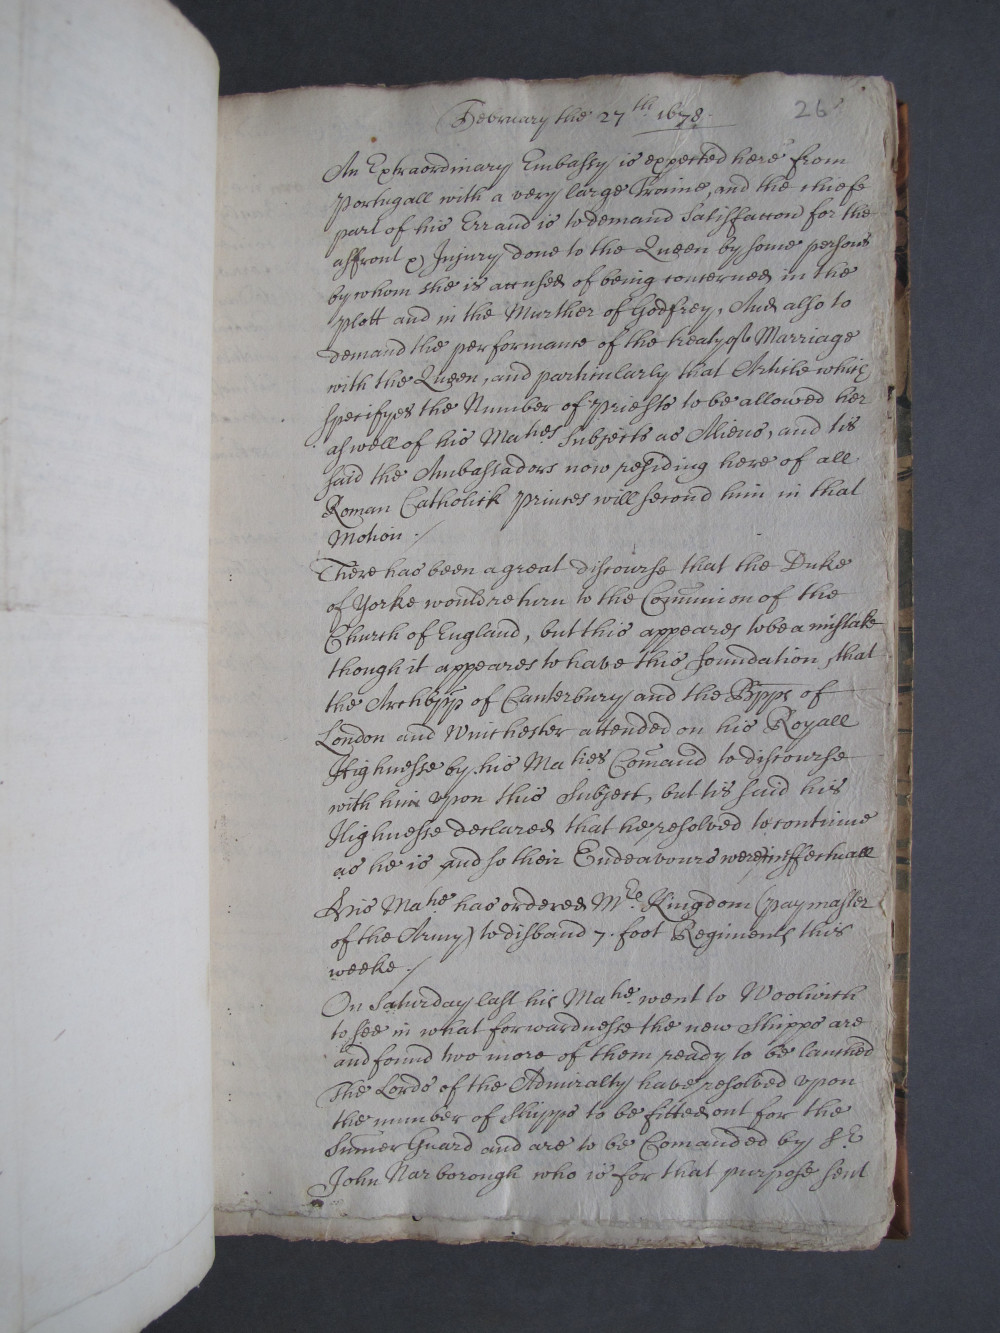 February the 27th 1678.
26
An Extraordinary Embassy is expected here from
Portugall with a very large Traine, and the chiefe
part of his Errand is to demand Satisfaccon for the
affront & Injury done to the Queen by some persons
by whom she is accused of being concerned in the
Plott and in the Murther of Godfrey, And also to
demand the performance of the treaty of Marriage
with the Queen, and particularly that Article which
specifyes the Number of Priests to be allowed her
aswell of his Maties Subjects as Aliens, and tis
said the Ambassadors now residing here of all
Roman Catholick Princes will second him in that
Motion.
There has been a great discourse that the Duke
of Yorke would returne to the Comunion of the
Church of England, but this appeares to be a mistake
though it appeares to have this foundation, that
the Archbpp of Canterbury and the Bpps of
London and Winchester attended on his Royall
Highnesse by his Maties Comand to discourse
with him upon this Subject, but tis said his
Highnesse declared that he resolved to continue
as he is and so their Endeavours were ineffectuall
His Matie has ordered Mr Kingdom (paymaster
of the Army) to disband 7. foot Regiments this
weeke.
On Saturday last his Matie went to Woolwich
to see in what forwardnesse the new Shipps are
and found two more of them ready to be lanched
The Lords of the Admiralty have resolved upon
the number of Shipps to be fitted out for the
Sumer Guard and are to be Comanded by Sr
John Narborough who is for that purpose sent